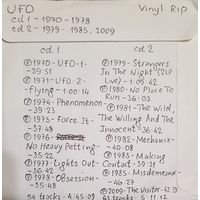 UFO Vinyl Rip
cd 1 - 1970 - 1978
cd 2 - 1979 - 1985, 2009
cd 1
Ⓟ1970 - UFO - 1 -
- 39:51
Ⓟ1971 - UFO - 2 -
- flying - 1:00:14
Ⓟ1974 - Phenomenon
- 39:23
Ⓟ1975 - Force It -
- 37:48
Ⓟ1976 -
No Heavy Petting -
- 35:22
Ⓟ1977 - Lights Out
- 36:42
Ⓟ1978 - Obsession -
- 35:48
54 tracks - 4:45:09
cd 2
Ⓟ1979 - Strangers
In The Night (2LP
Live) - 1:09:42
Ⓟ1980 - No Place To
Run - 36:03
Ⓟ1981 - The Wild,
The Willing And The
Innocent - 36:42
Ⓟ1982 - Mechanix -
- 40:08
Ⓟ1983 - Making
Contact - 39:31
Ⓟ1985 - Misdemeanor
- 46:27
Ⓟ2009 - The Visitor - 42:33
63 tracks - 5:11:12